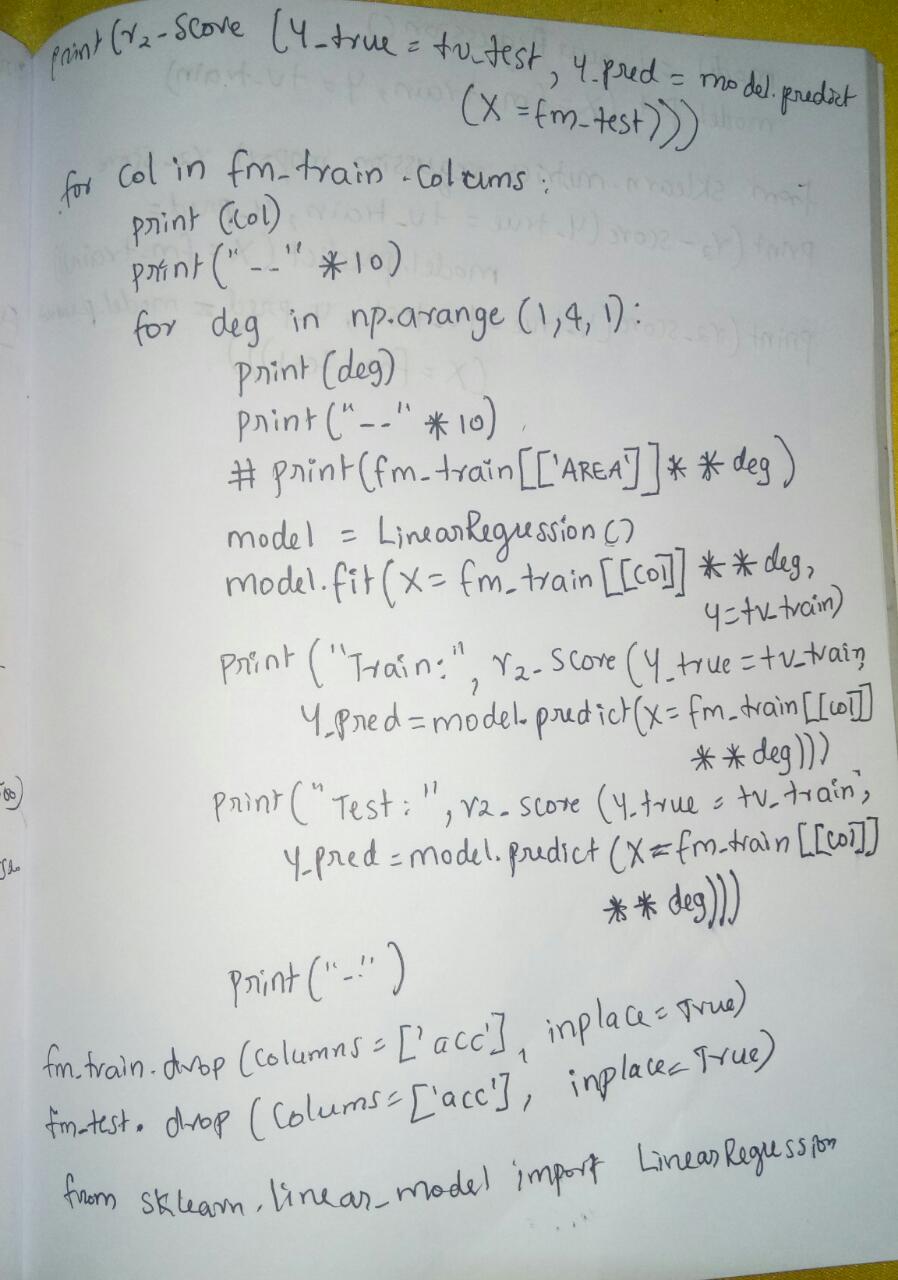 print(r2-score (y-true = tv-test, y-pred = model.predict
(X = fm-test)))
for col in fm-train.colums:
print (col)
print ("--" *10)
for deg in np.arange (1,4,1):
print (deg)
print ("--" * 10)
# print(fm-train[['AREA']]** deg)
model = LinearRegression()
model.fit(X= fm-train [[col]] ** deg,
y=tv-train)
Print ("Train:", r2-Score (y-true = tv-train,
y-pred = model.predict(X= fm-train[[col]]
** deg)))
Print (" Test:", r2-score (y-true = tv-train,
y-pred = model.predict (X=fm-train [[col]]
** deg)))
Print ("-:")
fm.train.drop (Columns = ['acc'], inplace = True)
fm-test. drop (Colums= ['acc'], inplace= True)
from sklearn.linear_model import LinearRegression